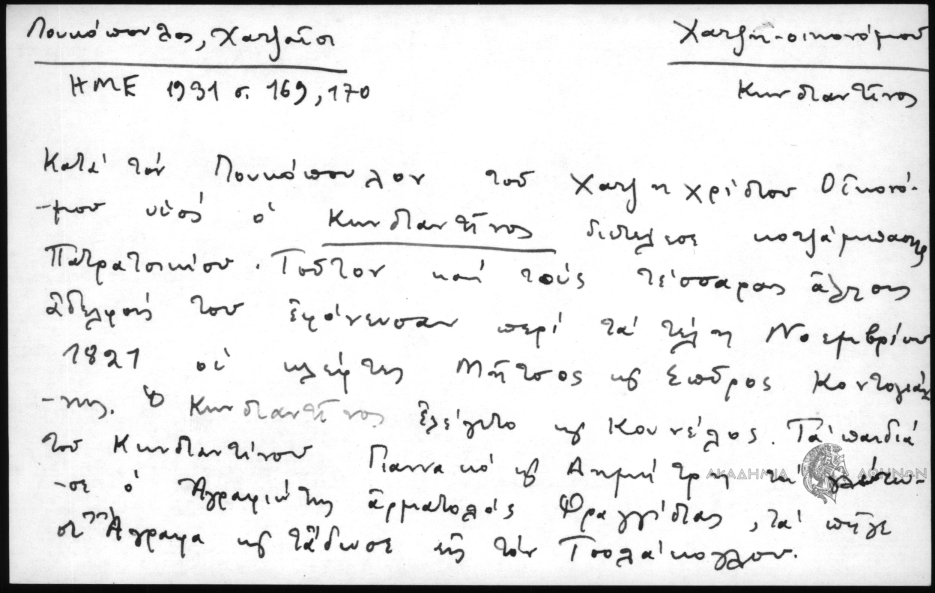 Λουκόπουλος, Χατζαῖοι
Χατζῆ-οικονόμου
ΗΜΕ 1931 σ. 169, 170
Κωνσταντῖνος
Κατά τόν Λουκόπουλον τοῦ Χατζῆ Χρίστου Οἰκονό-
-μου υἱός ὁ Κωνσταντῖνος διετέλεσε κοτζάμπασης
Πατρατσικίου. Τοῦτον καί τούς τέσσαρας ἄλλους
ἀδελφούς του ἐφόνευσαν περί τά τέλη Νοεμβρίου
1821 οἱ κλέφτες Μῆτσος κ Σπῦρος Κοντογιάν-
-νης. Ὁ Κωνσταντῖνος ἐλέγετο κ Κουνέλος. Τά παιδιά
του Κωνσταντίνου Γιαννακό κ Δημήτρη τά γλύτω-
-σε ὁ Ἀγραφιώτης ἁρματολός Φραγγίστας, τά πῆγε
στ' Ἄγραφα κ τἄδωσε εἰς τόν Τσολάκογλου.
ΑΚΑΔΗΜΙΑ ΑΘΗΝΩΝ